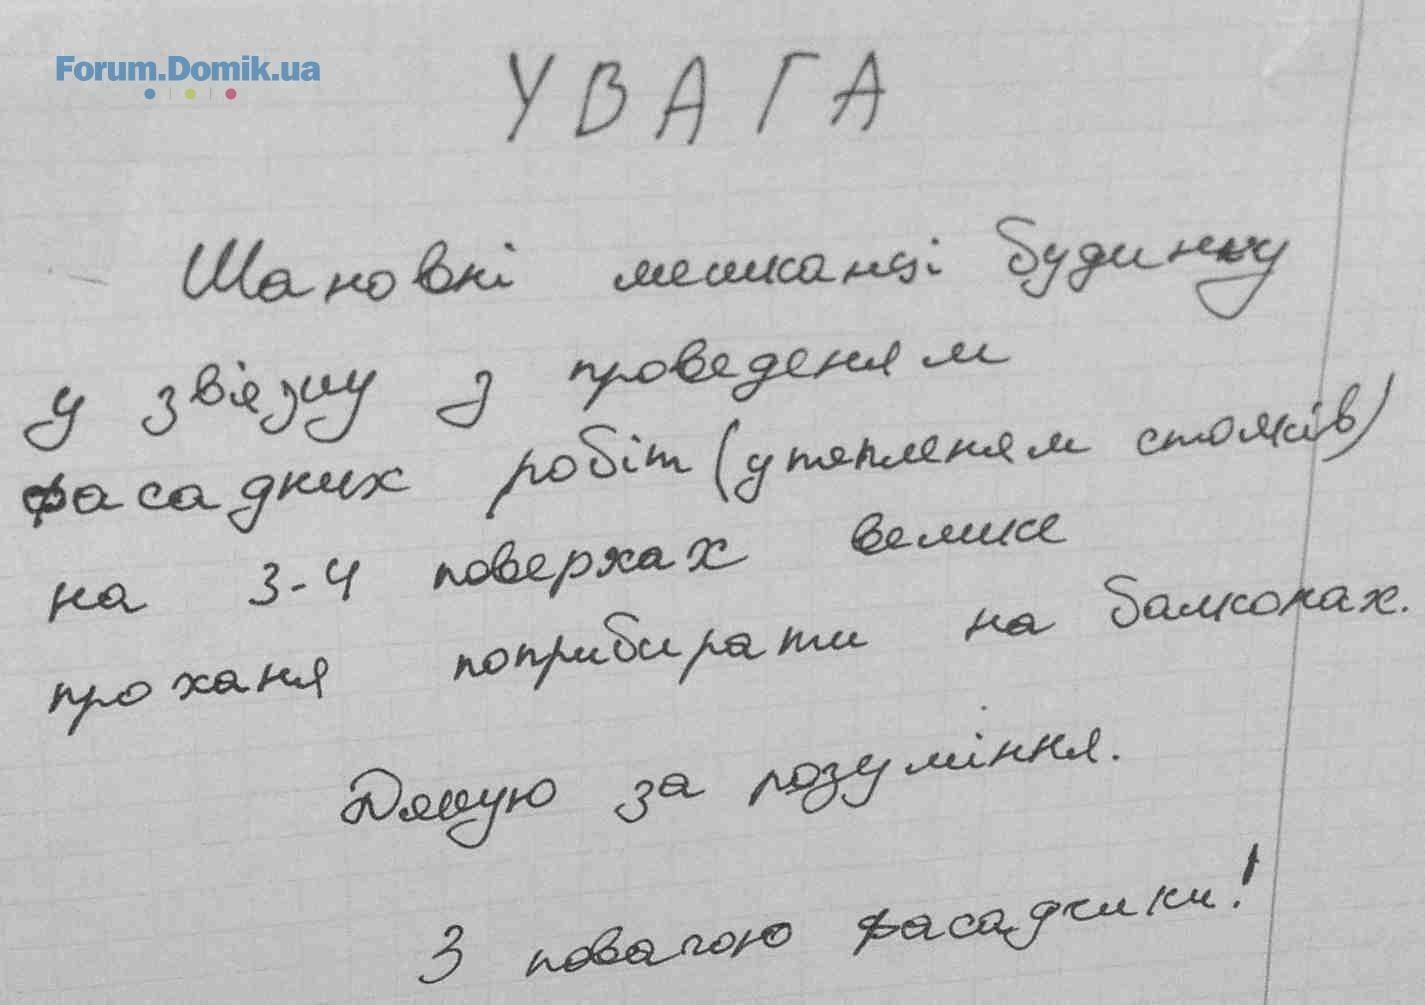 Forum.Domik.ua
УВАГА
Шановні мешканці будинку
у звіязку з проведеням
фасадних робіт (утепленям стояків)
на 3-4 поверхах велике
проханя поприбирати на балконах.
Дякую за розуміння.
З повагою фасадчики!